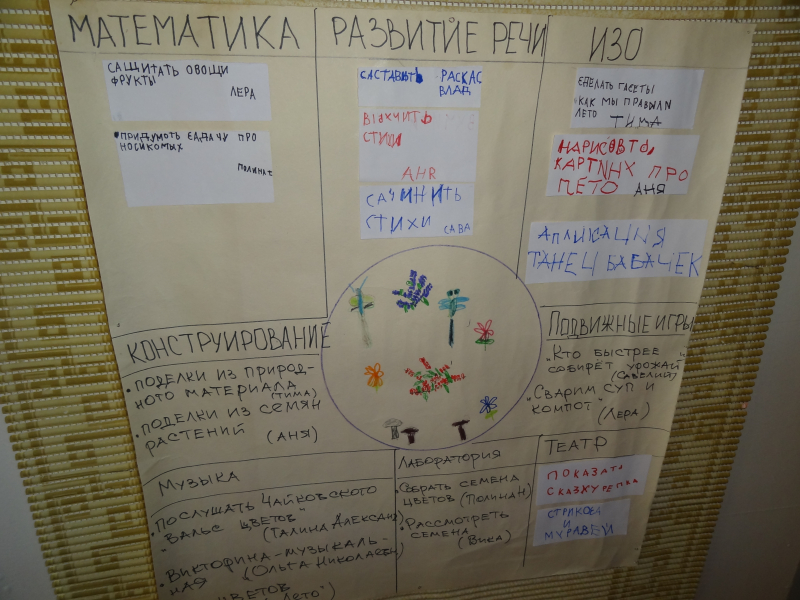 МАТЕМАТИКА
САЩИТАТЬ ОВОЩИ
ФРУКТЫ
ЛЕРА
ПРИДУМОТЬ ЕДДАЧУ ПРО
НОСИКОМЫХ
РАЗВИТИЕ РЕЧИ
САСТАВИТЬ РАСКАС
ВЛАД
СТИХИ
АНЯ
САЧИНИТЬ
СТИХИ САВА
ИЗО
СДЕЛАТЬ ГАСЕТЫ
КАК МЫ ПРАВЫЛИ
ЛЕТО ТИМА
НАРИСОВТЬ
КАРТИНХ ПРО
ЛЕТО АНЯ
АПЛИКАЦИЯ
ТАНЕЦ БАБАЧЕК
КОНСТРУИРОВАНИЕ
• ПОДЕЛКИ ИЗ ПРИРОД-
НОГО МАТЕРИАЛА
(ТИМА)
• ПОДЕЛКИ ИЗ СЕМЯН
РАСТЕНИЙ (АНЯ)
ПОДВИЖНЫЕ ИГРЫ
"КТО БЫСТРЕЕ
СОБИРЁТ УРОЖАЙ"
(САВЕЛИЙ)
"СВАРИМ СУП И
КОМПОТ" (ЛЕРА)
МУЗЫКА
• ПОСЛУШАТЬ ЧАЙКОВСКОГО
"ВАЛЬС ЦВЕТОВ"
(ГАЛИНА АЛЕКСАН
• ВИКТОРИНА-МУЗЫКАЛЬ-
НАЯ (ОЛЬГА НИКОЛАЕВ
ЦВЕТОВ
ЛЕТО")
ЛАБОРАТОРИЯ
• СОБРАТЬ СЕМЕНА
ЦВЕТОВ (ПОЛИНА Н)
• РАССМОТРЕТЬ
СЕМЕНА
(ВИКА)
ТЕАТР
ПОКАЗАТЬ
СКАЗКУ РЕПКА
СТРИКОЗА
И
МУРАВЕЙ